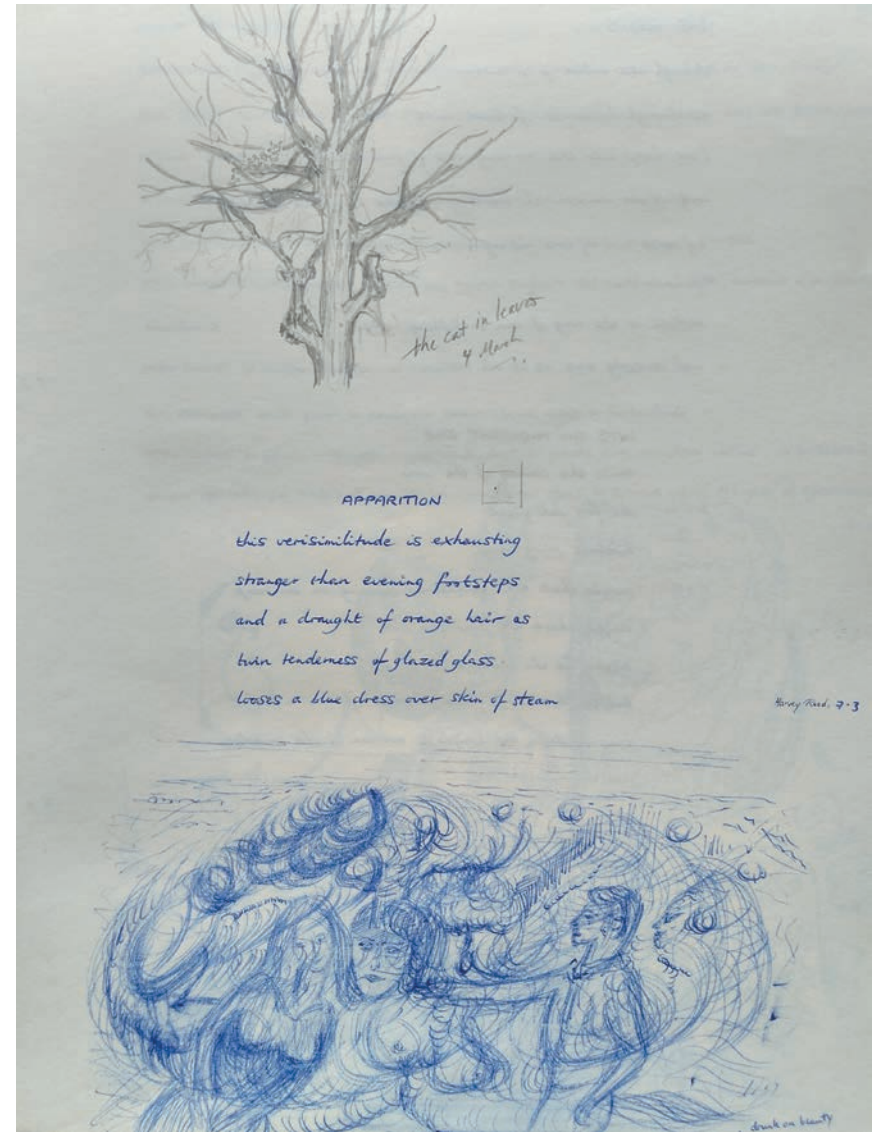 the cat in leaves
4 March
APPARITION
this verisimilitude is exhausting
stranger than evening footsteps
and a draught of orange hair as
twin tenderness of glazed glass
looses a blue dress over skin of steam
Harvey 7.3
drunk on beauty